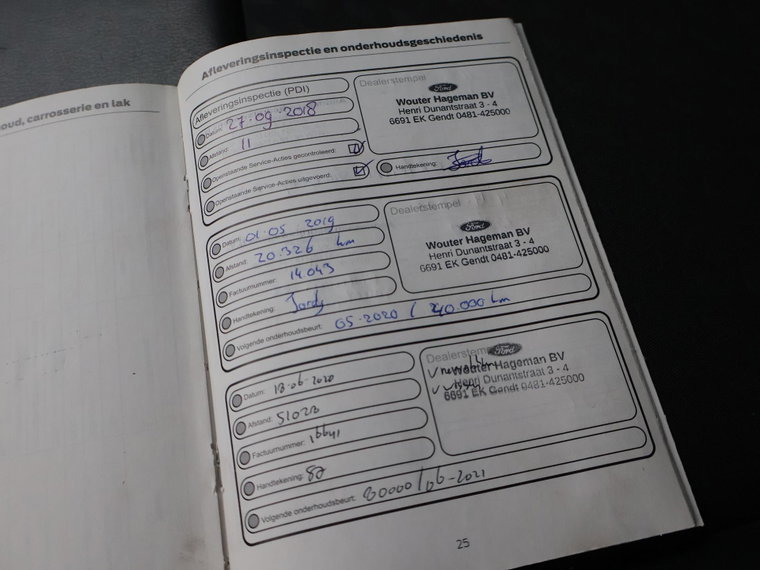 oud, carrosserie en lak
Afleveringsinspectie en onderhoudsgeschiedenis
Afleveringsinspectie (PDI)
Datum: 27-09-2018
Afstand: 11
Openstaande Service-Acties gecontroleerd:
Openstaande Service-Acties uitgevoerd:
Dealerstempel
Ford
Wouter Hageman BV
Henri Dunantstraat 3 - 4
6691 EK Gendt 0481-425000
Handtekening:
Datum: 01-05 2019
Afstand: 20.326 km
Factuurnummer: 14043
Handtekening:
Volgende onderhoudsbeurt: 05-2020 / 40.000 km
Dealerstempel
Ford
Wouter Hageman BV
Henri Dunantstraat 3 - 4
6691 EK Gendt 0481-425000
Datum: 18-06-2020
Afstand: 51023
Factuurnummer: 16641
Handtekening:
Volgende onderhoudsbeurt: 80000 / 06-2021
Dealerstempel
Ford
Wouter Hageman BV
Henri Dunantstraat 3 - 4
6691 EK Gendt 0481-425000
25